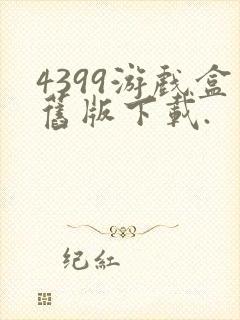 4399游戏盒
舊版下載.
纪紅